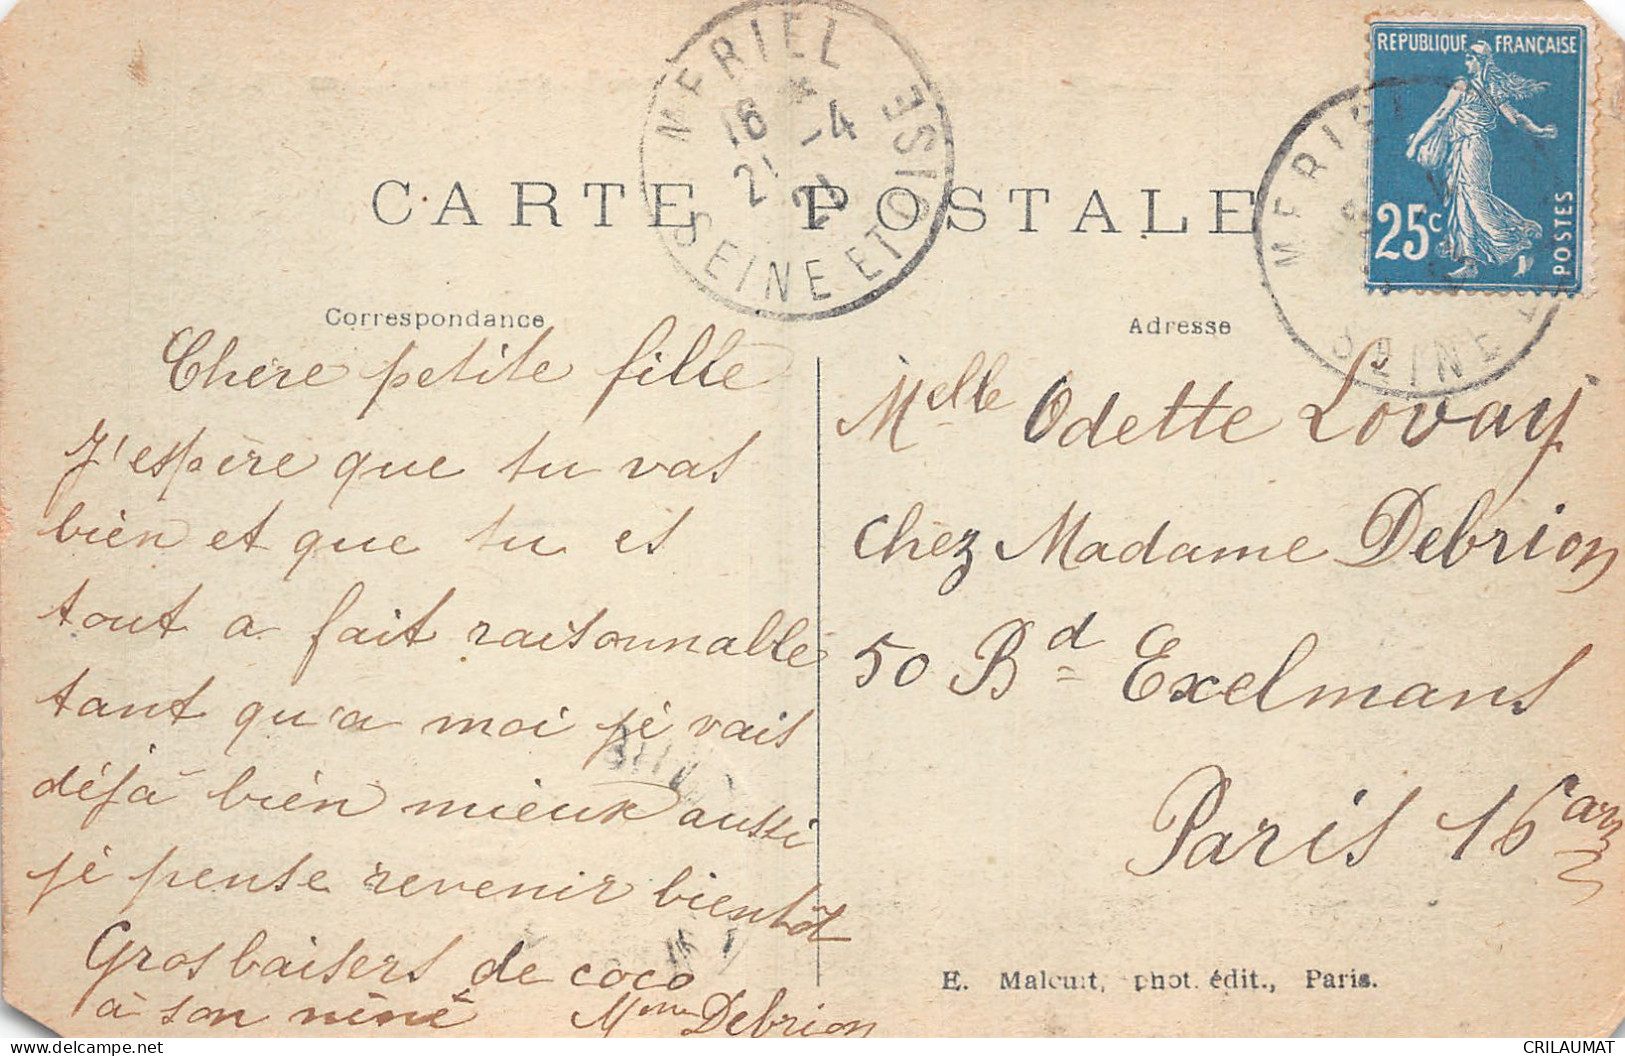 CARTE POSTALE
MERIEL
16 * -4
21 21
SEINE ET OISE
REPUBLIQUE FRANÇAISE
25c
POSTES
MERIEL
SEINE
Correspondance
Chère petite fille
J'espère que tu vas
bien et que tu es
tout a fait raisonnable
tant qu'a moi je vais
déjà bien mieux aussi
je pense revenir bientôt
Gros baisers de coco
à son néné Mme Debrion
Adresse
Melle Odette Lovay
chez Madame Debrion
50 Bd Exelmans
Paris 16e arr
E. Malcuit, phot. édit., Paris.
CRILAUMAT